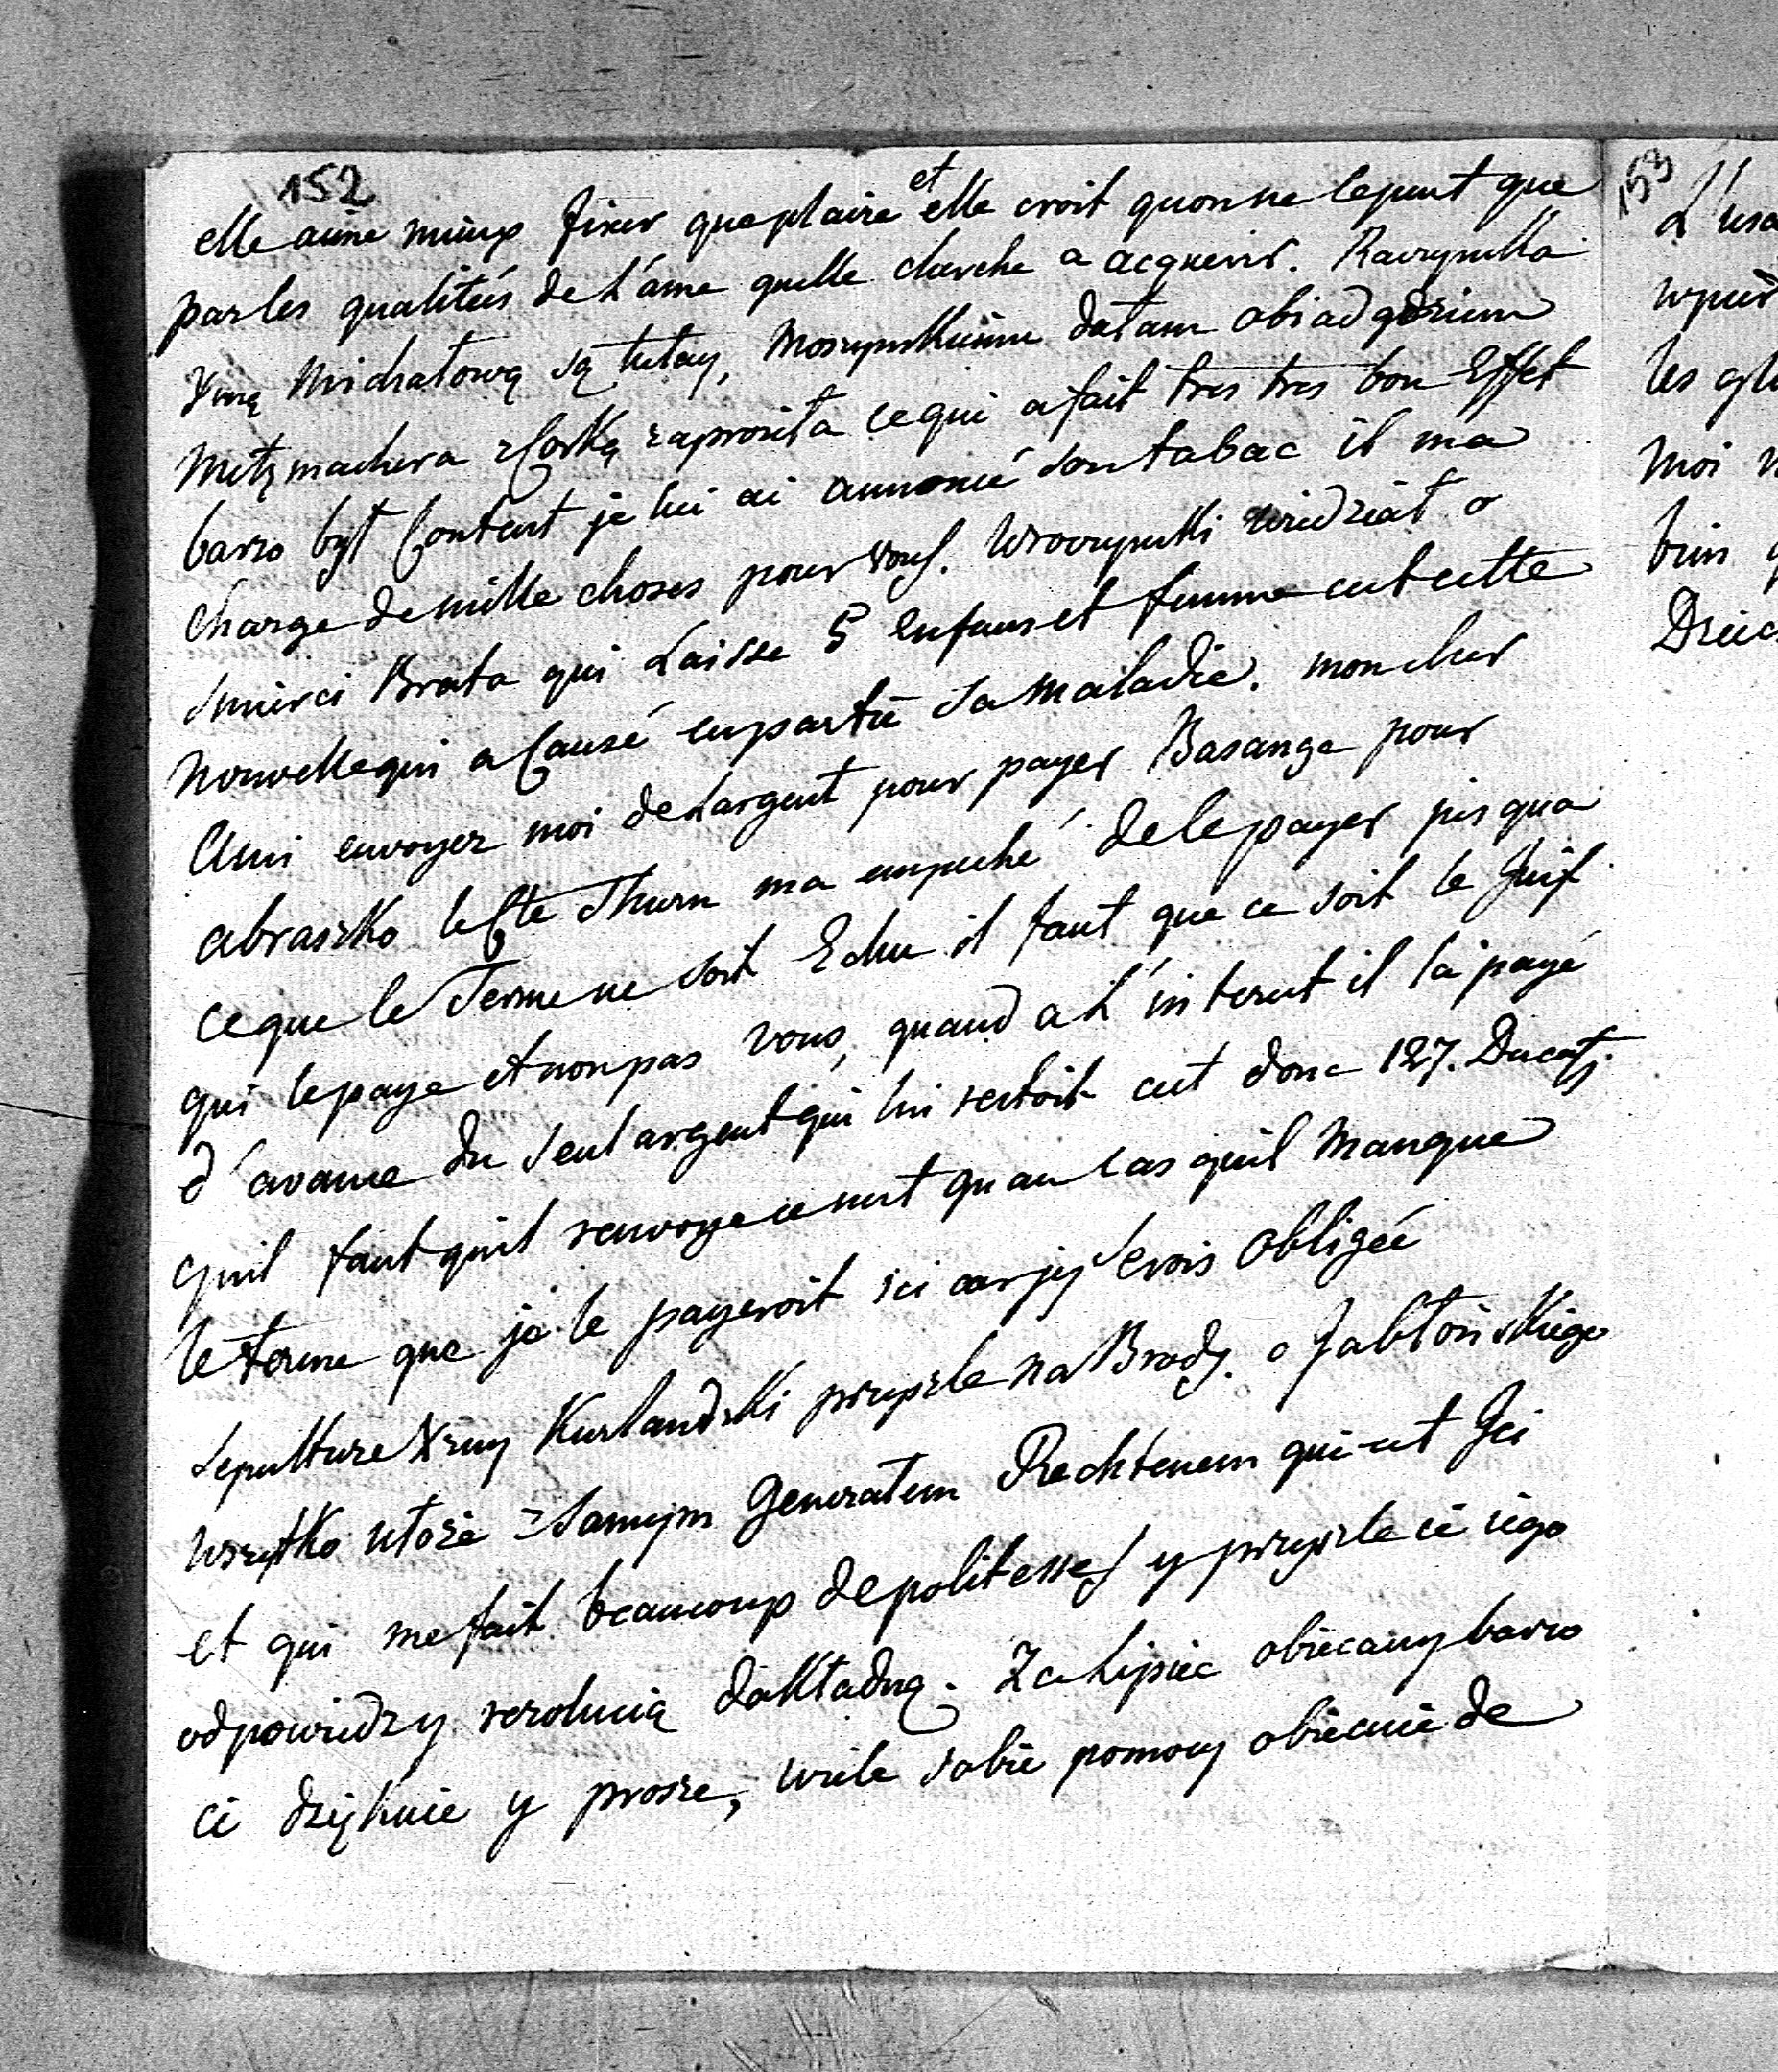 152
elle aime mieux fixer que plaire et elle croit quon ne le peut que
par les qualiteés de L'ame quelle cherche a acquerir. Raczynska
Xżną Michałową są tutay, Moszynskiemu dałam obiad gdziem
Metzmachera z Corką zaprosiła ce qui a fait tres tres bon Effet
barzo był Content je lui ai annoncé son tabac il ma
charge de mille choses pour vous. Wroczynski wiedział o
smierci Brata qui Laisse 5 enfans et femme cest cette
Nouvelle qui a Causé en partie sa maladie. mon cher
Ami envoyez moi de Largent pour payer Basange pour
abraszko le Cte Thurn ma empeché de le payer jusqua
ce que le Terme ne soit Echu il faut que ce soit le Juif
qui le paye et non pas vous, quand a L'interest il l'a payé
d'avance du seul argent qui lui restoit cest donc 127. Ducats.
quil faut quil renvoye ce nest quau Cas quil Manque
le terme que je le payeroit ici car jy serois obligée
sepulture Xżny Kurlandzki przyszle na Brody. o Jabłońskiego
wszytko ułoże z samym Generałem Rechtenem qui est Ici
et qui me fait beaucoup de politesses y przyszle ci iego
odpowiedz y rezolucią dokładną. Za Lipiec obiecany barzo
ci dziękuie y prosze, wiele sobie pomocy obiecuie de
153
L'usa
les
moi
bien